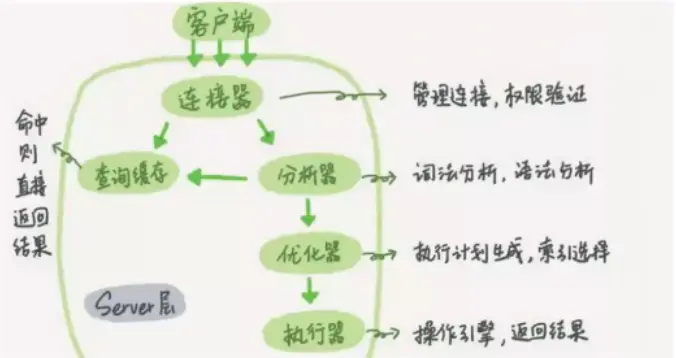 客户端
连接器
管理连接，权限验证
命中
则
直接
返回
结果
查询缓存
分析器
词法分析，语法分析
优化器
执行计划生成，索引选择
Server层
执行器
操作引擎，返回结果